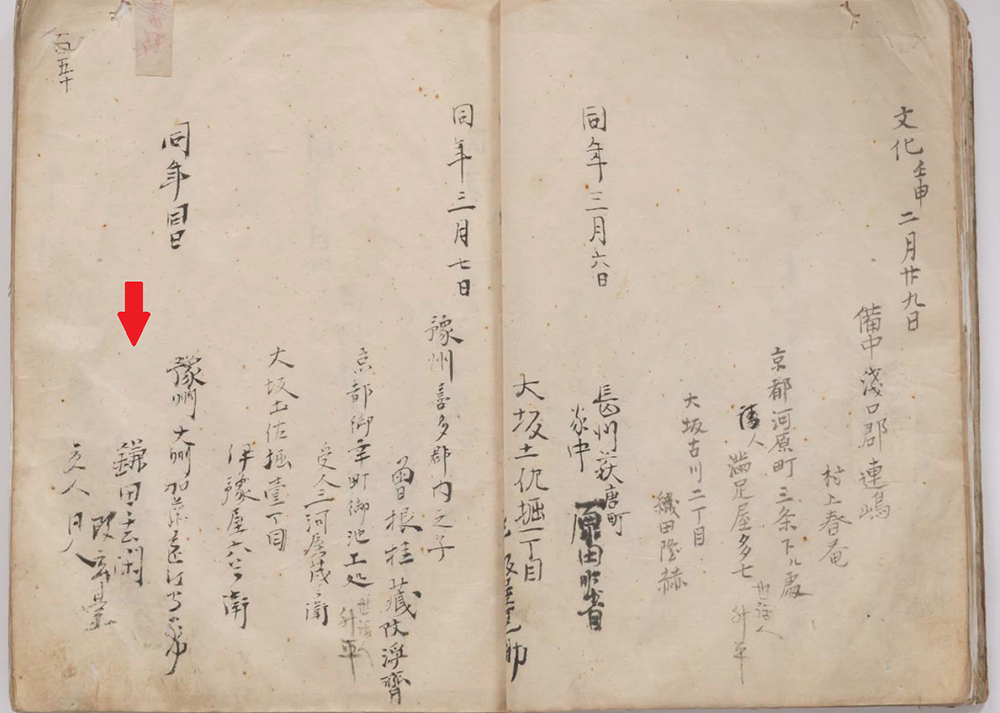 文化壬申二月廿九日
備中浅口郡連嶋
村上春庵
京都河原町三条下ル處
請人 満足屋多七
世話人 升平
大坂古川二丁目
織田隆赫
同年三月六日
長州萩唐町
家中 原田
大坂土佐掘一丁目
同年三月七日
豫州喜多郡内之子
曽根桂藏改浄齊
京都御幸町御池上処
受人三河屋茂兵衛
世話人 升平
大坂土佐掘壹丁目
伊豫屋六兵衛
同年同日
豫州大州加藤遠江守家中
鎌田玄閑
改玄臺
立人同人
百五十